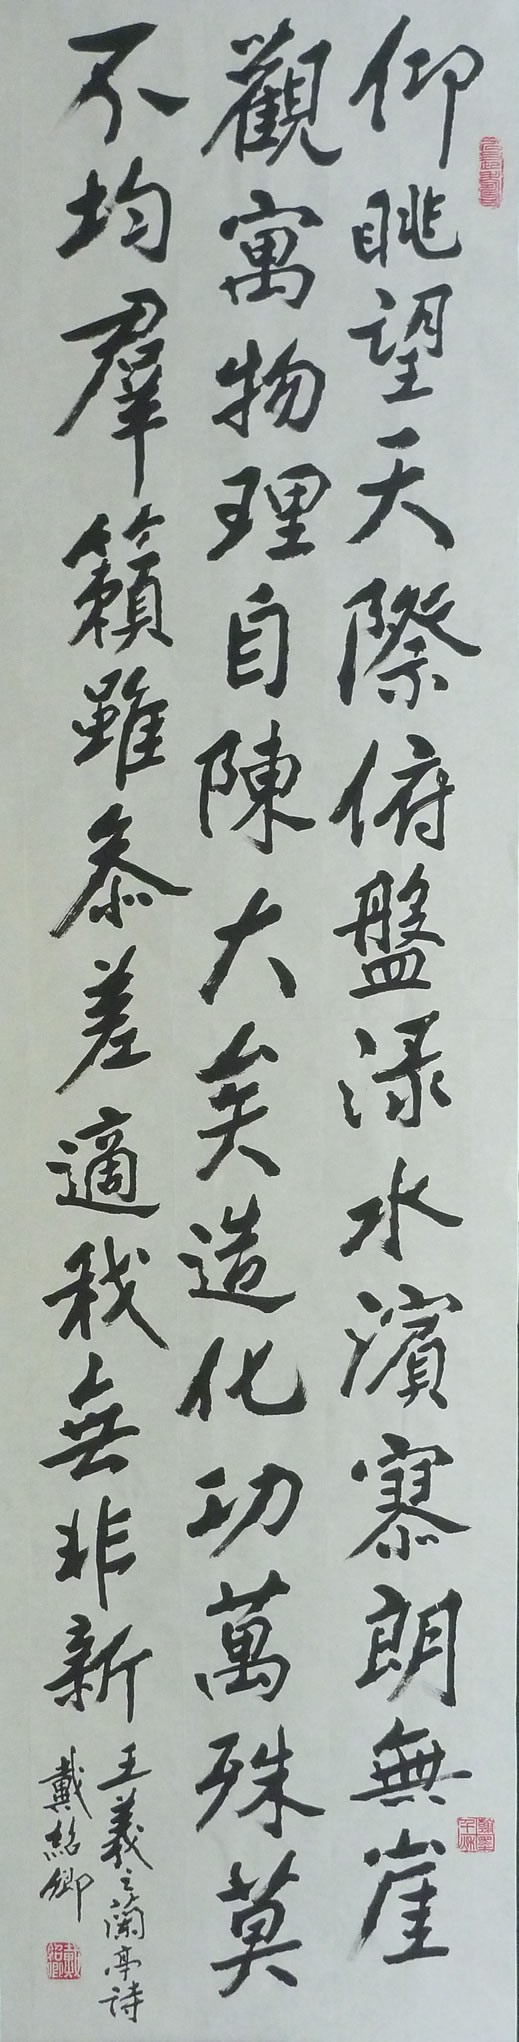 仰眺望天際俯盤渌水濱寥朗無崖
觀寓物理自陳大矣造化功萬殊莫
不均群籟雖叅差適我無非新
王羲之蘭亭詩
戴紹卿